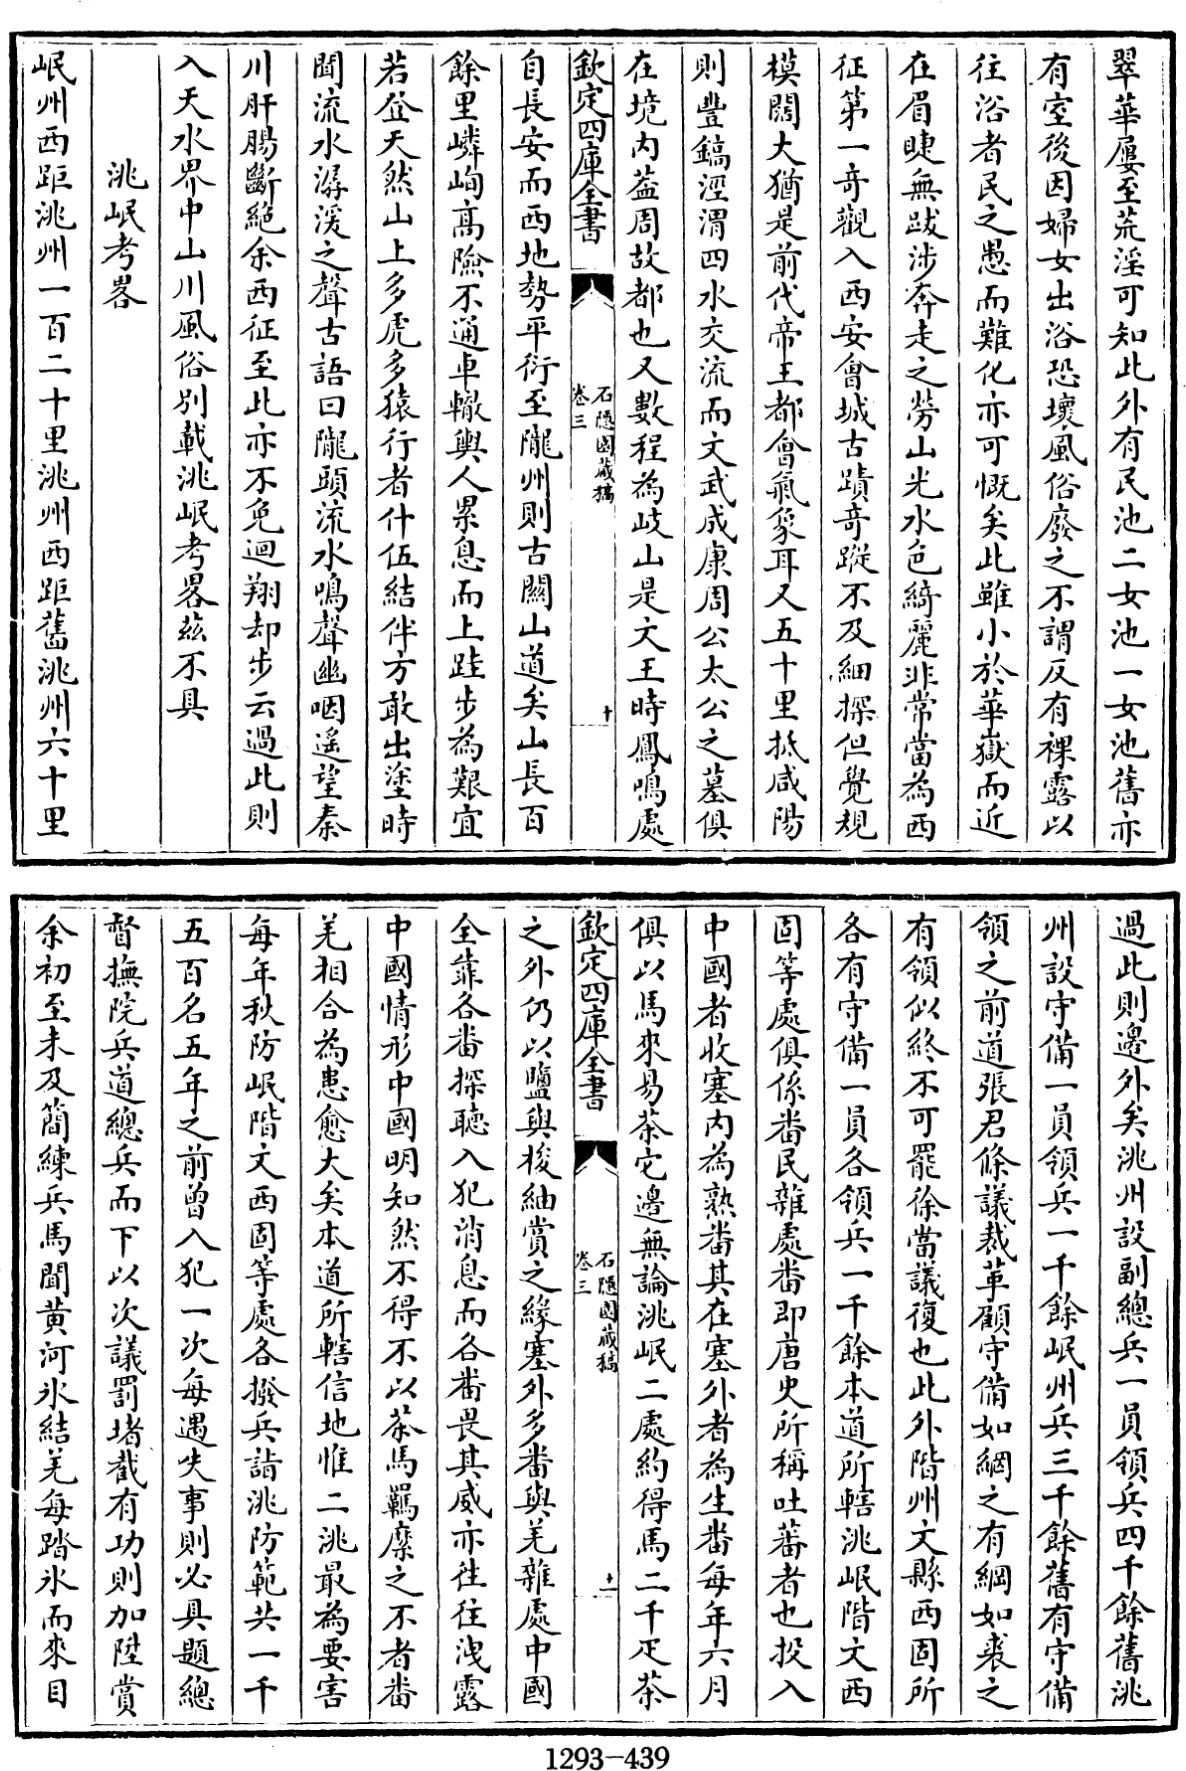 翠華屢至荒淫可知此外有民池二女池一女池舊亦
有室後因婦女出浴恐壞風俗廢之不謂反有裸露以
往浴者民之愚而難化亦可慨矣此雖小於華嶽而近
在眉睫無跋涉奔走之勞山光水色綺麗非常當為西
征第一奇觀入西安會城古蹟奇蹤不及細探但覺規
模闊大猶是前代帝王都會氣象耳又五十里抵咸陽
則豐鎬涇渭四水交流而文武成康周公太公之墓俱
在境内葢周故都也又數程為岐山是文王時鳳鳴處
欽定四庫全書
石隱園藏稿
卷三
十
自長安而西地勢平衍至隴州則古關山道矣山長百
餘里嶙峋高險不通車轍輿人累息而上跬步為艱宜
若登天然山上多虎多猿行者什伍結伴方敢出塗時
聞流水潺湲之聲古語曰隴頭流水鳴聲幽咽遥望秦
川肝腸斷絶余西征至此亦不免迴翔却步云過此則
入天水界中山川風俗别載洮岷考畧兹不具
洮岷考畧
岷州西距洮州一百二十里洮州西距舊洮州六十里
過此則邊外矣洮州設副總兵一員領兵四千餘舊洮
州設守備一員領兵一千餘岷州兵三千餘舊有守備
領之前道張君條議裁革顧守備如網之有綱如裘之
有領似終不可罷徐當議復也此外階州文縣西固所
各有守備一員各領兵一千餘本道所轄洮岷階文西
固等處俱係番民雜處番即唐史所稱吐蕃者也投入
中國者收塞内為熟番其在塞外者為生番每年六月
俱以馬來易茶它邊無論洮岷二處約得馬二千疋茶
欽定四庫全書
石隱園藏稿
卷三
十一
之外仍以鹽與梭紬賞之緣塞外多番與羌雜處中國
全靠各番探聽入犯消息而各番畏其威亦往往洩露
中國情形中國明知然不得不以茶馬羈縻之不者番
羌相合為患愈大矣本道所轄信地惟二洮最為要害
每年秋防岷階文西固等處各撥兵詣洮防範共一千
五百名五年之前曾入犯一次每遇失事則必具題總
督撫院兵道總兵而下以次議罰堵截有功則加陞賞
余初至未及簡練兵馬聞黄河氷結羌每踏氷而來目
1293-439